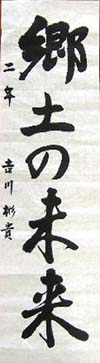 郷土の未来
二年
吉川彬貴